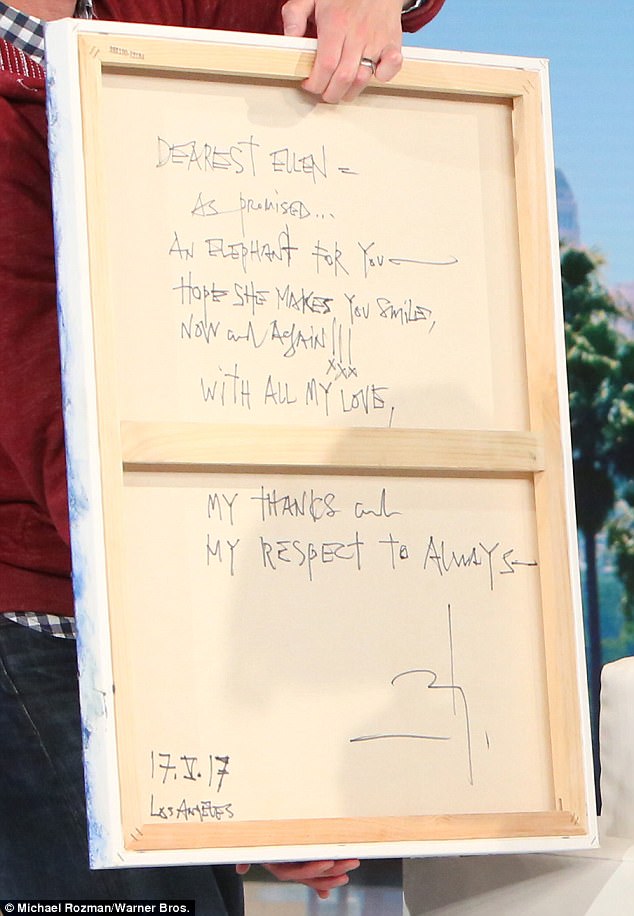 DEAREST ELLEN -
As promised...
AN ELEPHANT FOR YOU
HOPE SHE MAKES YOU SMILE,
NOW and AgAiN!!!
xxx
WITH ALL MY LOVE,
MY THANKS and
MY RESPECT to ALWAYS
17.V.17
LOS ANGELES
© Michael Rozman/Warner Bros.